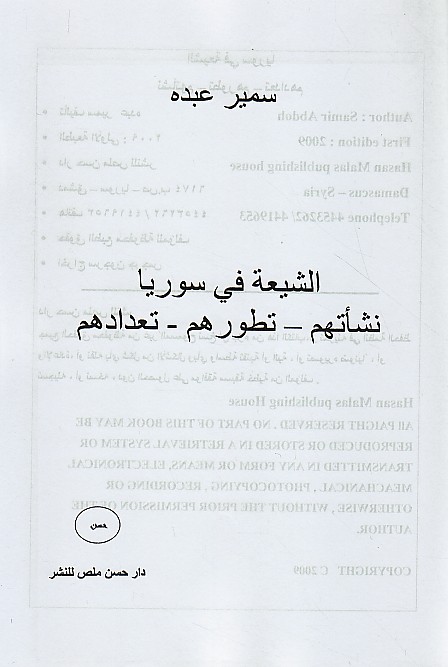 سمير عبده
الشيعة في سوريا
نشأتهم – تطورهم - تعدادهم
حسن
دار حسن ملص للنشر
Author : Samir Abdoh
First edition : 2009
Hasan Malas publishing house
Damascus – Syria
Telephone 4453262/ 4419653
Hasan Malas publishing House
All PAIGHT RESERVED . NO PART OF THIS BOOK MAY BE
REPRODUCED OR STORED IN A RETRIEVAL SYSTEM OR
TRANSMITTED IN ANY FORM OR MEANS, ELECTRONICAL
MEACHANICAL , PHOTOCOPYING . RECORDING OR
OTHERWISE , WITHOUT THE PRIOR PERMISSION OF THE
AUTHOR.
COPYRIGHT C 2009